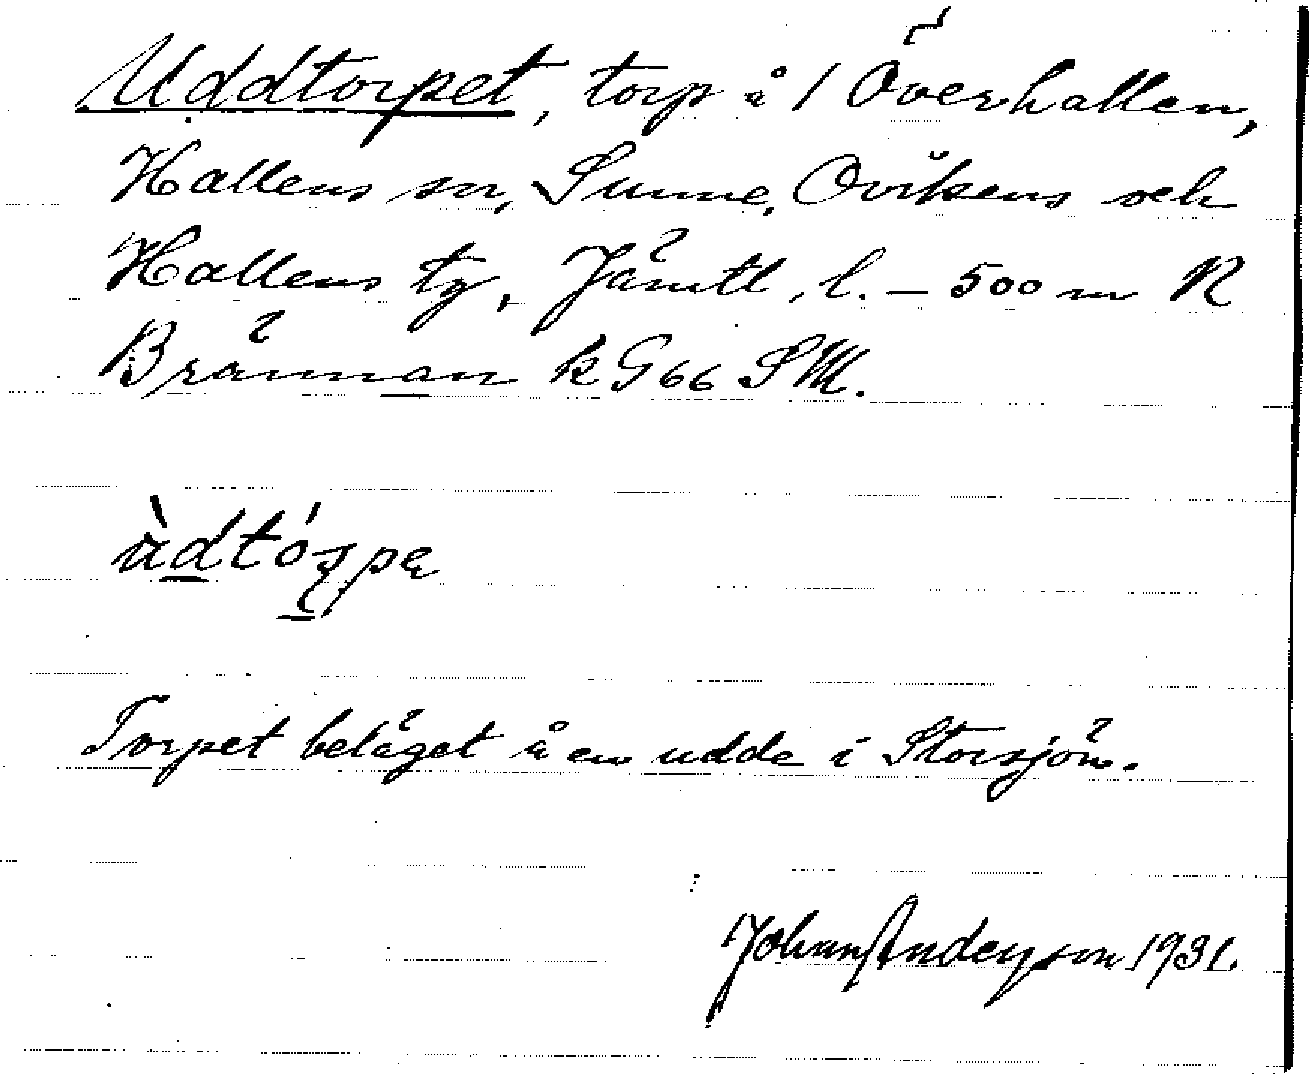 Uddtorpet, torp å 1 Överhallen,
Hallens sn, Sunne, Ovikens och
Hallens tg, Jämtl. l. – 500 m R
Brännan k G 66 SM.
Torpet beläget å en udde i Storsjön.
Johan Anderson 1931.